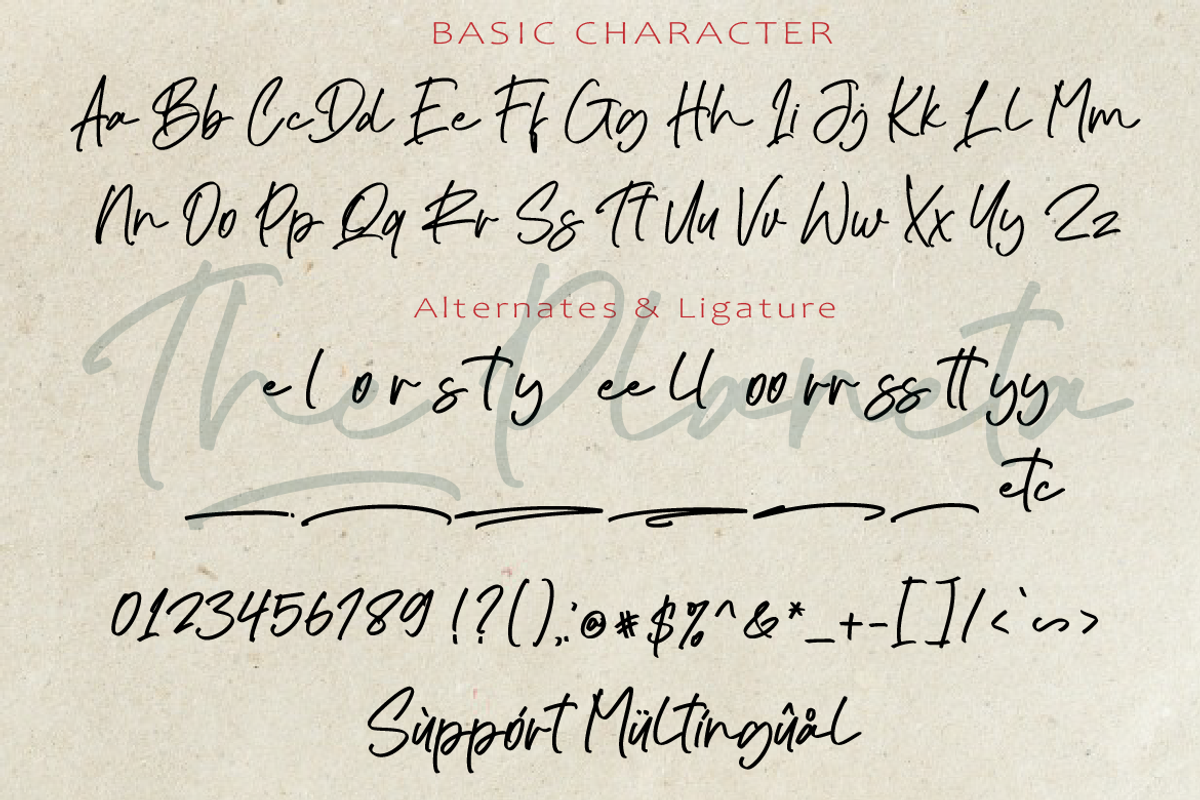 BASIC CHARACTER
Aa Bb Cc Dd Ee Ff Gg Hh Ii Jj Kk Ll Mm
Nn Oo Pp Qq Rr Ss Tt Uu Vv Ww Xx Yy Zz
The Planeta
Alternates & Ligature
e l o r s t y ee ll oo rr ss tt yy
etc
0123456789 !?(),;:@#$%^&*_+-[]/<`~>
Sùppórt Mültíngûål